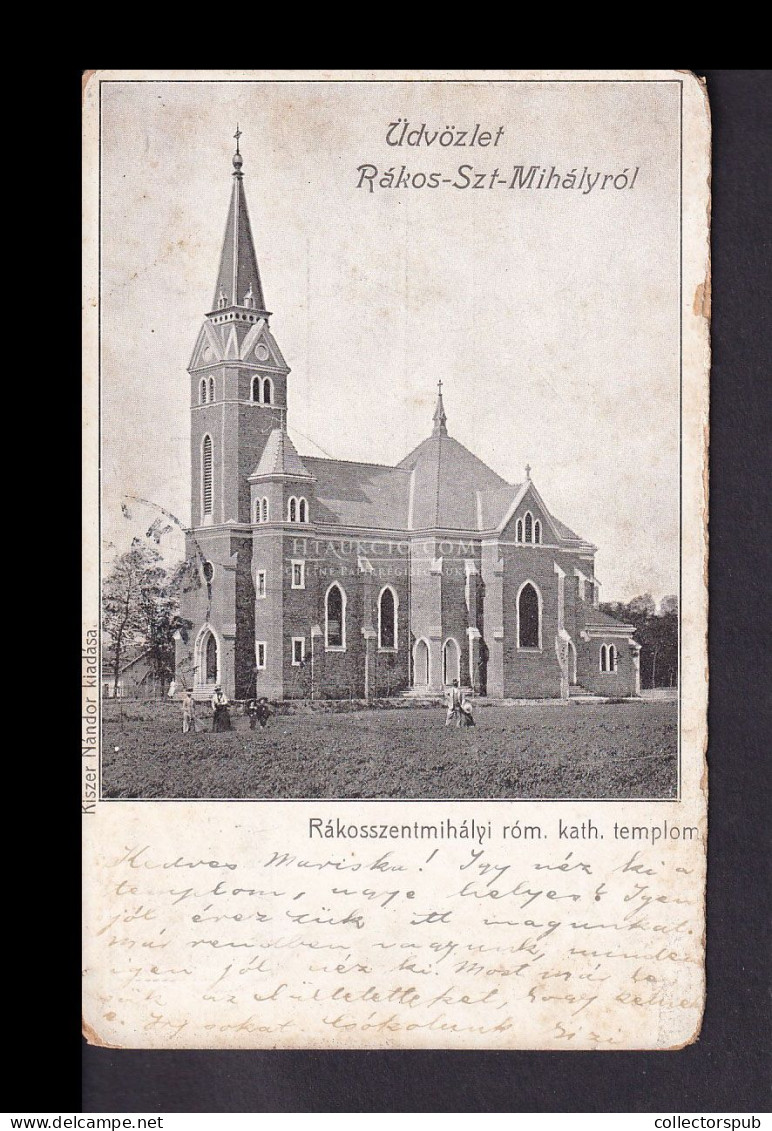 Üdvözlet
Rákos-Szt-Mihályról
HTAUKCIO.COM
Kiszer Nándor kiadása.
Rákosszentmihályi róm. kath. templom
Kedves Mariska! Igy néz ki a
templom, ugye helyes? Igen
jól érezzük itt magunkat.
már rendben vagyunk, minden
igen jól néz ki. Most már
az hogy
Irj sokat. Csókolunk Gizi
delcampe.net
collectorspub